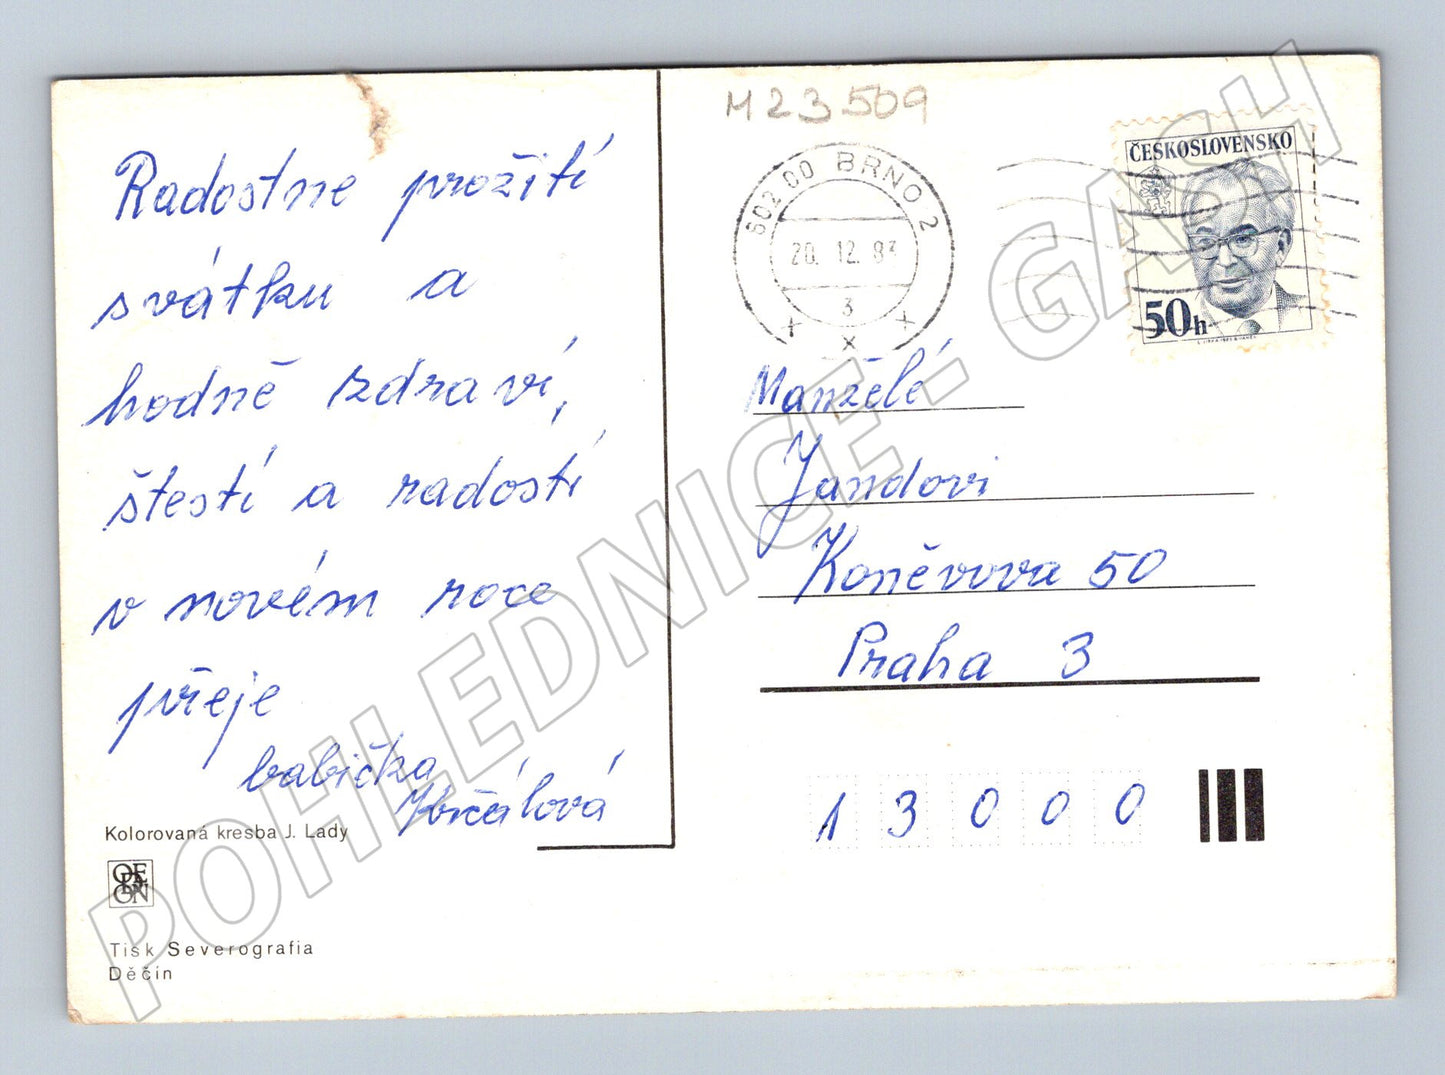 Radostne prožití
svátku a
hodně zdraví,
štestí a radosti
v novém roce
přeje
babička
Kolorovaná kresba J. Lady
ODEON
Tisk Severografia
Děčín
M23509
602 00 BRNO 2
20. 12. 83
3
x x x
ČESKOSLOVENSKO
50h
Manželé
Jandovi
Koněvova 50
Praha 3
1 3 0 0 0
POHLEDNICE - GASH